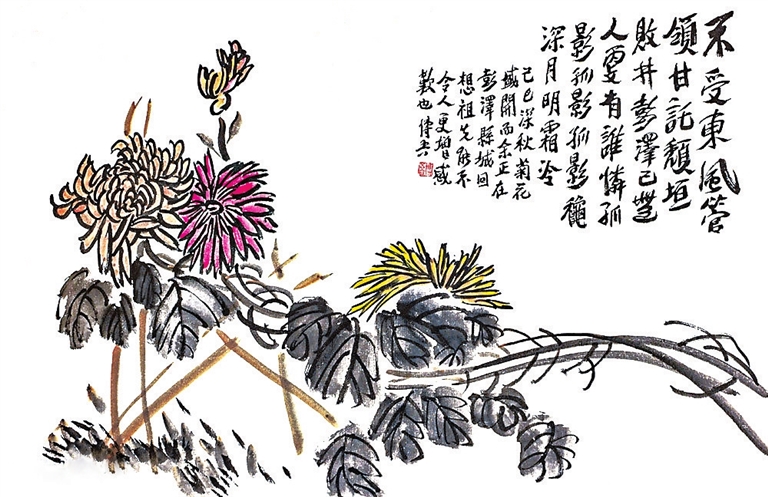 不受東風管
領甘託頹垣
敗井彭澤已無
人更有誰憐孤
影孤影孤影穐
深月明霜冷
己巳深秋菊花
盛開而余正在
彭澤縣城回
想祖先能不
令人更增感
歎也